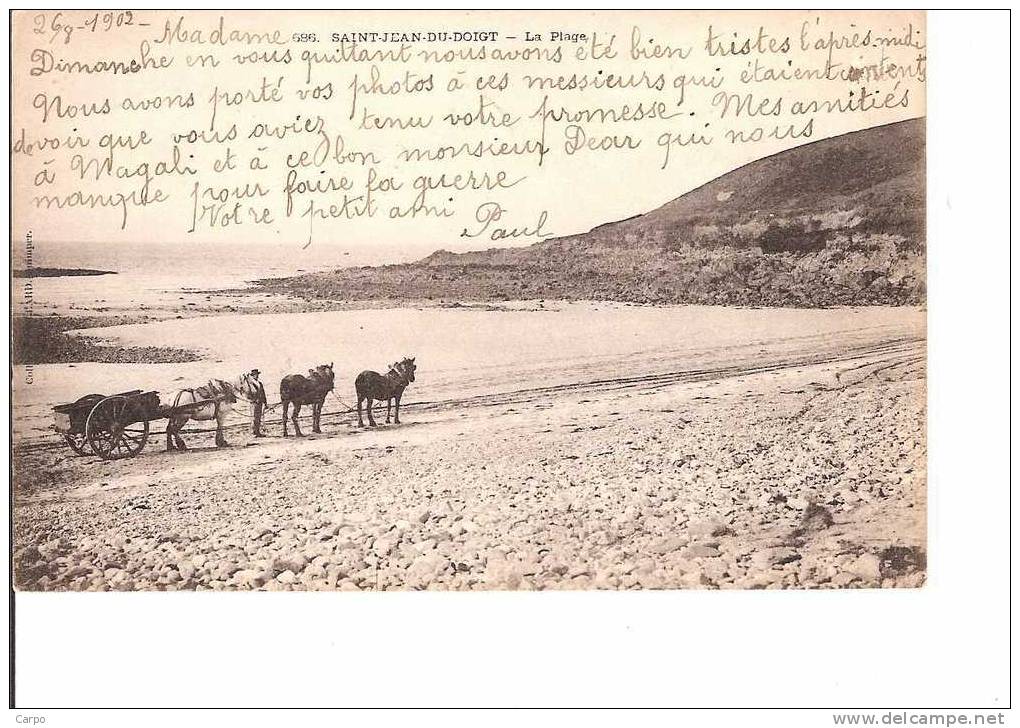 26-8-1902-
Madame
686. SAINT-JEAN-DU-DOIGT — La Plage
Dimanche en vous quittant nous avons été bien tristes l'après-midi
Nous avons porté vos photos à ces messieurs qui étaient contents
de voir que vous aviez tenu votre promesse. Mes amitiés
à Magali et à ce bon monsieur Dear qui nous
manque pour faire la guerre
Votre petit ami
Paul
Carpo
www.delcampe.net